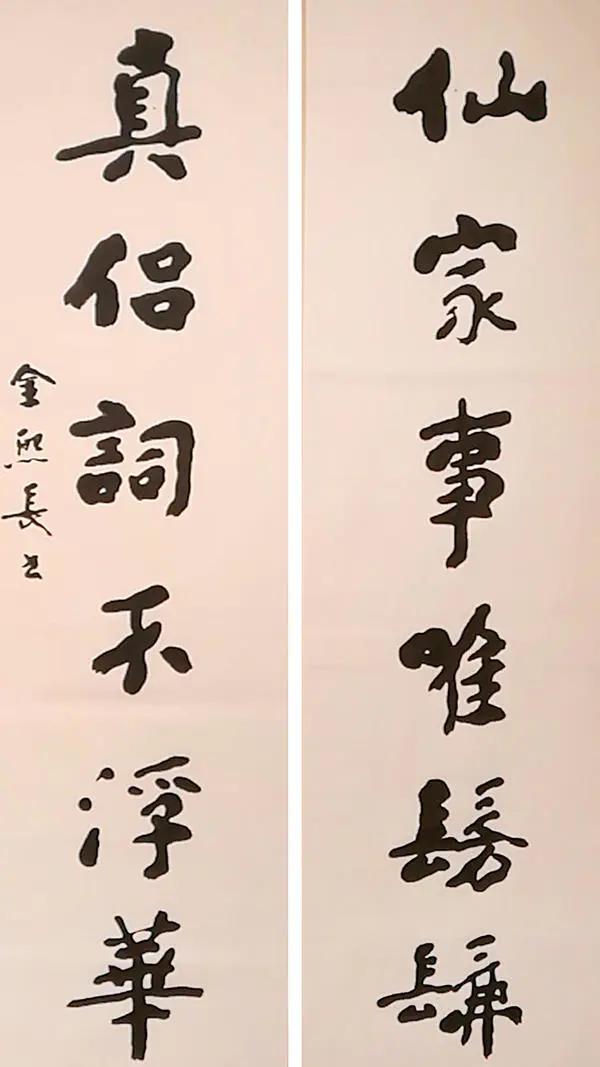 仙家事唯髣髴
真侣詞不浮華
金熙長书